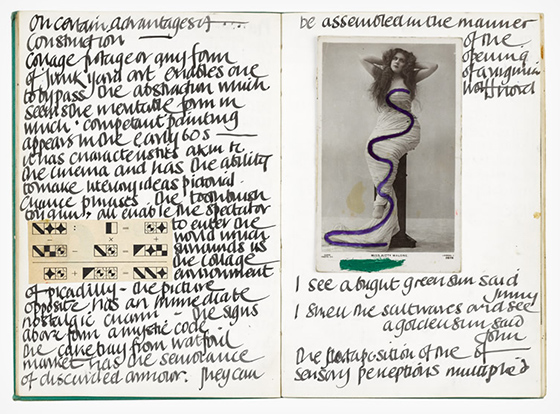 On certain advantages of
Construction
Collage potage or any form
of junk yard art enables one
to bypass the abstraction which
seems the inevitable form in
which competent painting
appears in the early 60s
it has characteristics akin to
the cinema and has the ability
to make literary ideas pictorial.
Chance phrases the toothbrush
all enable the spectator
to enter the
world which
surrounds us
the collage
environment
of picadilly - the picture
opposite has an immediate
nostalgic charm - the signs
above form a mystic code
the cane buoy from
market has the semblance
of discarded armour. They can
be assembled in the manner
of the
opening
of a virginia
woolf novel
MISS
I see a bright green sun said
Jinny
I smell the saltwaves and see
a golden sun said
John
the juxtaposition of the of
sensory perceptions multiplied